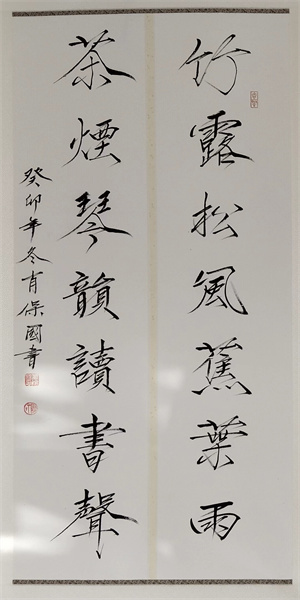 竹露松風蕉葉雨
茶煙琴韻讀書聲
癸卯年冬肖保國書